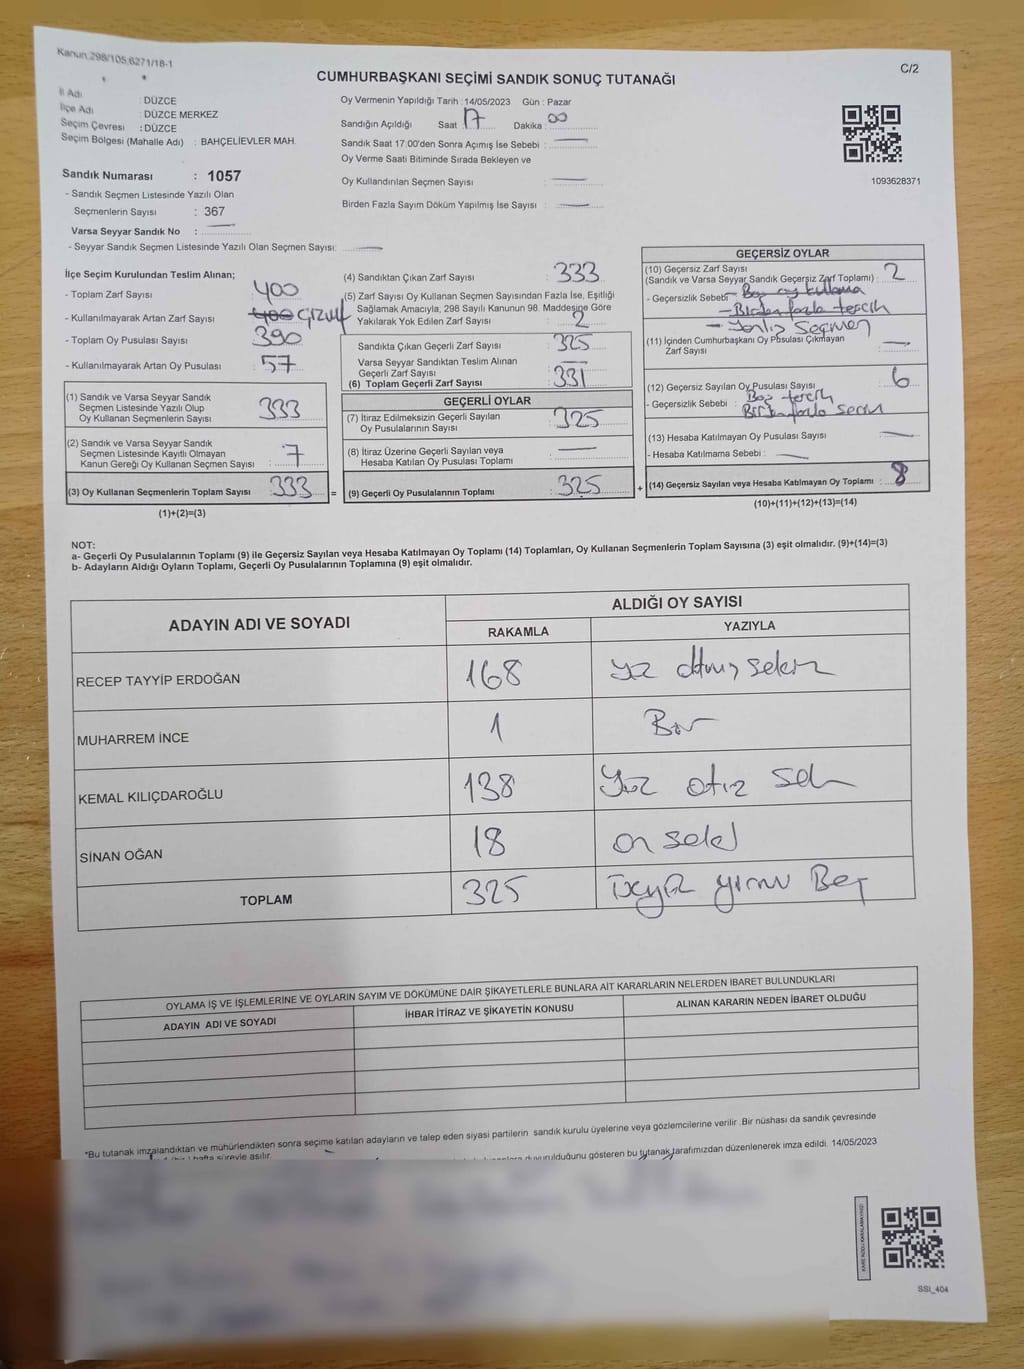 Kanun:298/105;6271/18-1
C/2
CUMHURBAŞKANI SEÇİMİ SANDIK SONUÇ TUTANAĞI
İl Adı : DÜZCE
İlçe Adı : DÜZCE MERKEZ
Seçim Çevresi : DÜZCE
Seçim Bölgesi (Mahalle Adı) : BAHÇELİEVLER MAH.
Oy Vermenin Yapıldığı Tarih : 14/05/2023 Gün : Pazar
Sandığın Açıldığı Saat 17 Dakika 00
Sandık Saat 17.00'den Sonra Açımış İse Sebebi :
Oy Verme Saati Bitiminde Sırada Bekleyen ve
Oy Kullandırılan Seçmen Sayısı
Birden Fazla Sayım Döküm Yapılmış İse Sayısı
1093628371
Sandık Numarası : 1057
- Sandık Seçmen Listesinde Yazılı Olan
Seçmenlerin Sayısı : 367
Varsa Seyyar Sandık No :
- Seyyar Sandık Seçmen Listesinde Yazılı Olan Seçmen Sayısı:
İlçe Seçim Kurulundan Teslim Alınan;
- Toplam Zarf Sayısı 400
- Kullanılmayarak Artan Zarf Sayısı 400
- Toplam Oy Pusulası Sayısı 390
- Kullanılmayarak Artan Oy Pusulası 57
(1) Sandık ve Varsa Seyyar Sandık
Seçmen Listesinde Yazılı Olup
Oy Kullanan Seçmenlerin Sayısı : 333
(2) Sandık ve Varsa Seyyar Sandık
Seçmen Listesinde Kayıtlı Olmayan
Kanun Gereği Oy Kullanan Seçmen Sayısı : 7
(3) Oy Kullanan Seçmenlerin Toplam Sayısı : 333 =
(1)+(2)=(3)
(4) Sandıktan Çıkan Zarf Sayısı : 333
(5) Zarf Sayısı Oy Kullanan Seçmen Sayısından Fazla İse, Eşitliği
Sağlamak Amacıyla, 298 Sayılı Kanunun 98. Maddesine Göre
Yakılarak Yok Edilen Zarf Sayısı : 2
Sandıkta Çıkan Geçerli Zarf Sayısı : 325
Varsa Seyyar Sandıktan Teslim Alınan
Geçerli Zarf Sayısı
(6) Toplam Geçerli Zarf Sayısı : 331
GEÇERLİ OYLAR
(7) İtiraz Edilmeksizin Geçerli Sayılan
Oy Pusulalarının Sayısı : 325
(8) İtiraz Üzerine Geçerli Sayılan veya
Hesaba Katılan Oy Pusulası Toplamı
(9) Geçerli Oy Pusulalarının Toplamı : 325 +
GEÇERSİZ OYLAR
(10) Geçersiz Zarf Sayısı
(Sandık ve Varsa Seyyar Sandık Geçersiz Zarf Toplamı) : 2
- Geçersizlik Sebebi - Boş oy kullama
- Birden fazla tercih
- Yanlız Seçmen
(11) İçinden Cumhurbaşkanı Oy Pusulası Çıkmayan
Zarf Sayısı
(12) Geçersiz Sayılan Oy Pusulası Sayısı : 6
- Geçersizlik Sebebi : Boş tercih
Birden fazla
(13) Hesaba Katılmayan Oy Pusulası Sayısı
- Hesaba Katılmama Sebebi :
(14) Geçersiz Sayılan veya Hesaba Katılmayan Oy Toplamı : 8
(10)+(11)+(12)+(13)=(14)
NOT:
a- Geçerli Oy Pusulalarının Toplamı (9) ile Geçersiz Sayılan veya Hesaba Katılmayan Oy Toplamı (14) Toplamları, Oy Kullanan Seçmenlerin Toplam Sayısına (3) eşit olmalıdır. (9)+(14)=(3)
b- Adayların Aldığı Oyların Toplamı, Geçerli Oy Pusulalarının Toplamına (9) eşit olmalıdır.
ADAYIN ADI VE SOYADI
ALDIĞI OY SAYISI
RAKAMLA YAZIYLA
RECEP TAYYİP ERDOĞAN 168 yüz altmış sekiz
MUHARREM İNCE 1 Bir
KEMAL KILIÇDAROĞLU 138 Yüz otuz sekiz
SİNAN OĞAN 18 on sekiz
TOPLAM 325 üçyüz yirmi Beş
OYLAMA İŞ VE İŞLEMLERİNE VE OYLARIN SAYIM VE DÖKÜMÜNE DAİR ŞİKAYETLERLE BUNLARA AİT KARARLARIN NELERDEN İBARET BULUNDUKLARI
ADAYIN ADI VE SOYADI İHBAR İTİRAZ VE ŞİKAYETİN KONUSU ALINAN KARARIN NEDEN İBARET OLDUĞU
*Bu tutanak imzalandıktan ve mühürlendikten sonra seçime katılan adayların ve talep eden siyasi partilerin sandık kurulu üyelerine veya gözlemcilerine verilir .Bir nüshası da sandık çevresinde
hafta süreyle asılır. duyurulduğunu gösteren bu tutanak tarafımızdan düzenlenerek imza edildi. 14/05/2023
SSI_404